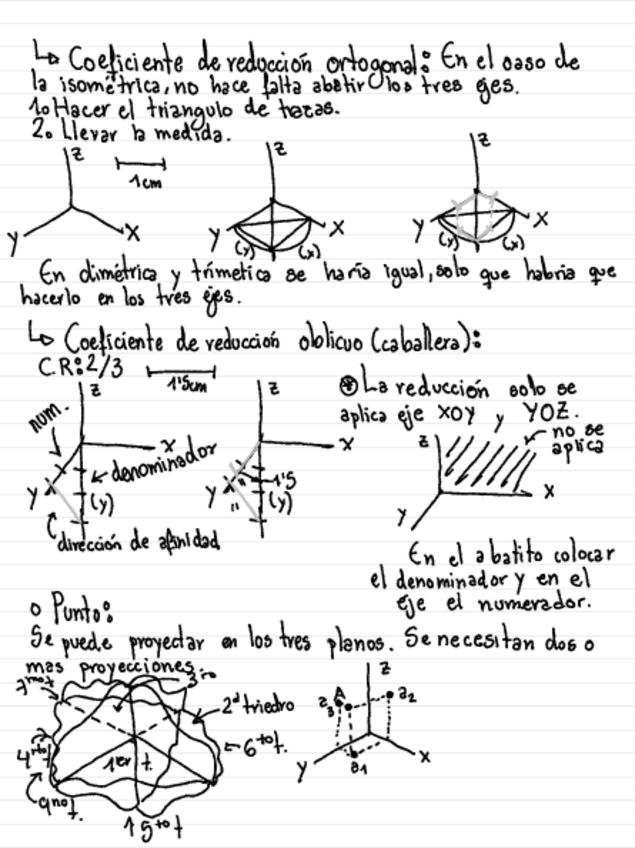 ↳ Coeficiente de reducción ortogonal: En el caso de
la isométrica, no hace falta abatir los tres ejes.
1. Hacer el triangulo de trazas.
2. Llevar la medida.
Z
1cm
Y
X
Z
Y
X
(y)
(x)
Z
Y
X
(y)
(x)
En dimétrica y trimetica se haría igual, solo que habria que
hacerlo en los tres ejes.
↳ Coeficiente de reducción oblicuo (caballera):
C.R: 2/3
1'5cm
num.
Z
X
denominador
Y
(y)
dirección de afinidad
Z
X
1'5
Y
(y)
La reducción solo se
aplica eje XOY y YOZ.
no se
aplica
Z
X
Y
En el abatito colocar
el denominador y en el
eje el numerador.
o Punto:
Se puede proyectar en los tres planos. Se necesitan dos o
mas proyecciones.
3ro
2º triedro
6to t.
1er t.
4rto t
9no t.
5to t
Z
A
a3
a2
a1
Y
X